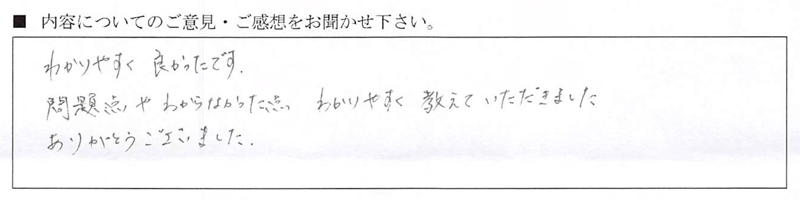 ■ 内容についてのご意見・ご感想をお聞かせ下さい。
わかりやすく 良かったです.
問題点や わからなかった点、 わかりやすく 教えて いただきました
ありがとうございました.